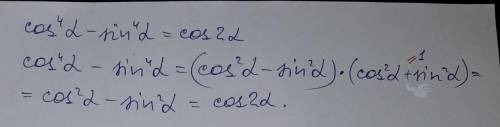 cos⁴α - sin⁴α = cos2α
cos⁴α - sin⁴α = (cos²α - sin²α)·(cos²α + sin²α) =
= cos²α - sin²α = cos2α.
=1